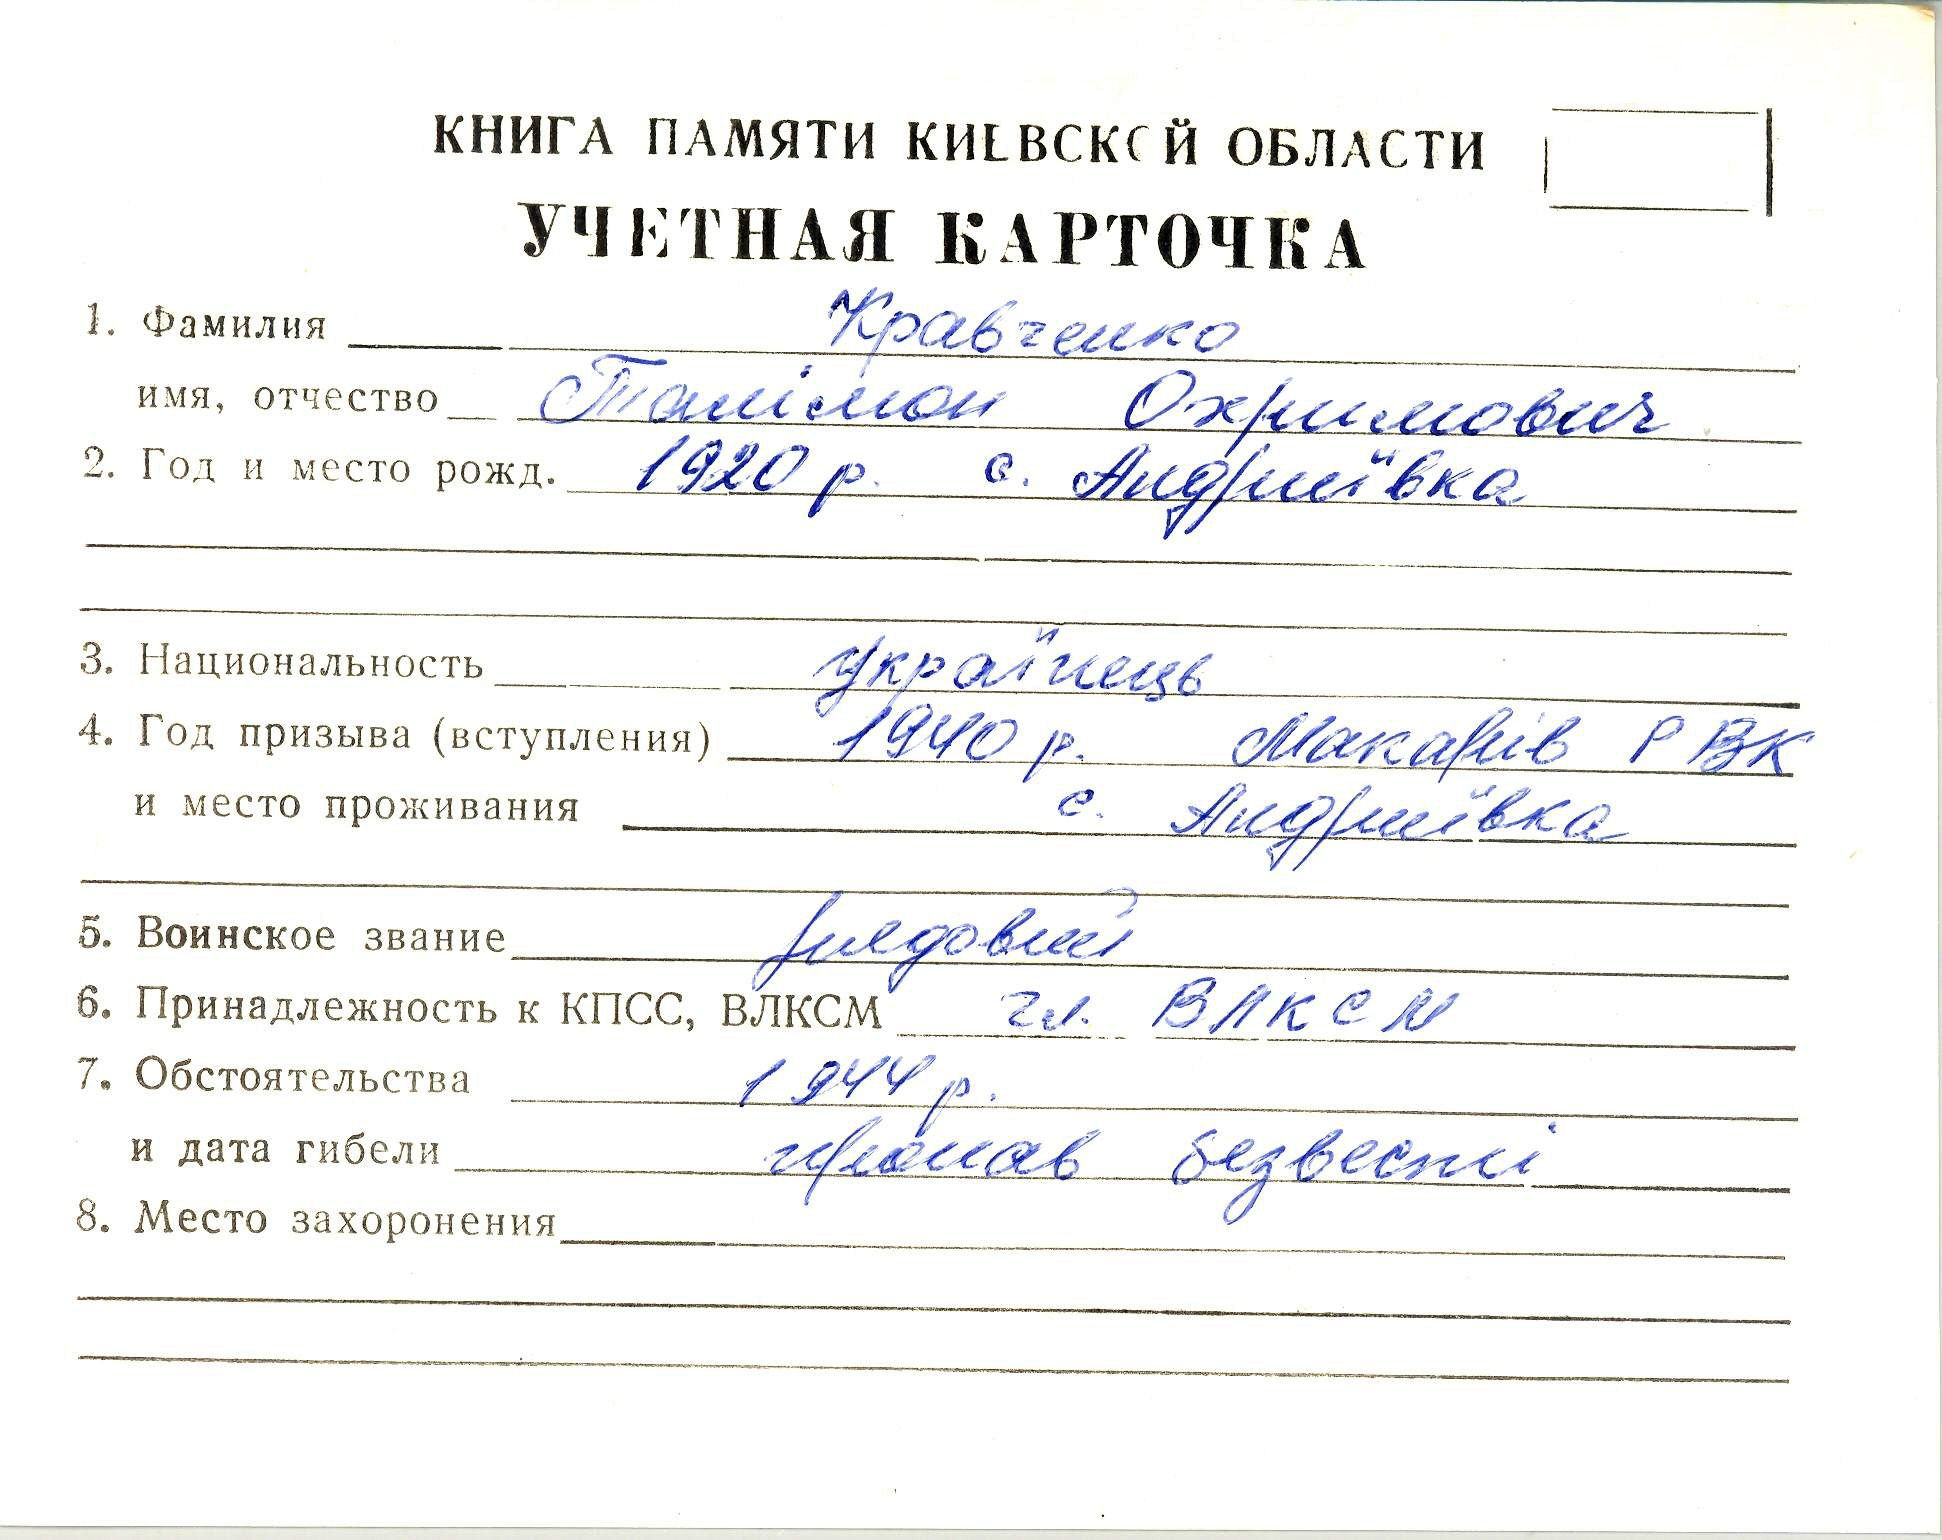 КНИГА ПАМЯТИ КИЕВСКОЙ ОБЛАСТИ
УЧЕТНАЯ КАРТОЧКА
1. Фамилия Кравченко
имя, отчество Танімон Охримович
2. Год и место рожд. 1920 р. с. Андріївка
3. Национальность українець
4. Год призыва (вступления) 1940 р. Макарів РВК
и место проживания с. Андріївка
5. Воинское звание рядовий
6. Принадлежность к КПСС, ВЛКСМ чл. ВЛКСМ
7. Обстоятельства 1944 р.
и дата гибели пропав безвесті
8. Место захоронения